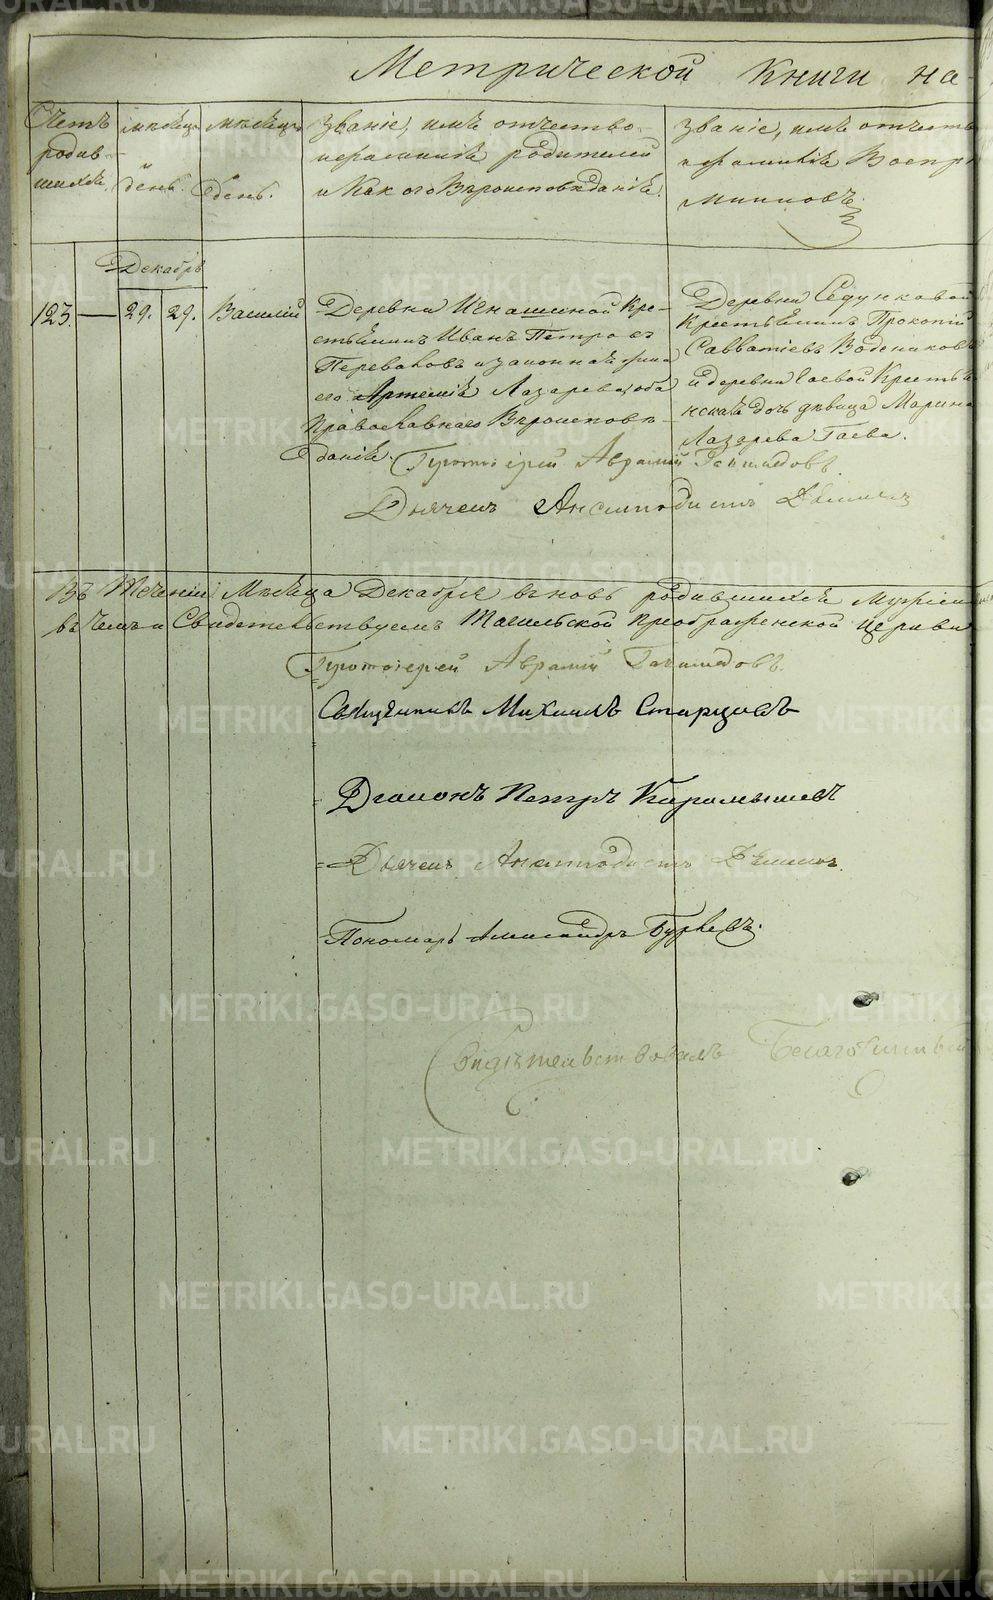 Метрической Книги на
Счетъ родив-шихся
Мѣсяцъ и день.
Мѣсяцъ день.
Званіе, имѣ отчество
и фамилія родителей
и Какого Вѣроисповѣданія.
Званіе, имѣ отчеств
и фамилія Воспрі
мниковъ.
Декабрь
123. — 29. 29. Василій
Деревни Игнашиной Кре-
стьянинъ Иванъ Петровъ
Переваловъ и законная жена
его Артемія Лазарева, оба
православнаго Вѣроисповѣ-
данія.
Деревни Седунковой
Крестьянинъ Прокопій
Савватіевъ
и деревни Гаевой Крестья
нская дочь дѣвица Марина
Лазарева Гаева.
Протоіерей Аврамій
Дьячекъ
Въ теченіи Мѣсяца Декабря вновь родившихся
въ чемъ и Свидетельствуемъ Тагильской преображенской церкви
Протоіерей Аврамій
Священникъ Михаилъ Старцовъ
Діаконъ Петръ Карамышевъ
Дьячекъ
Пономарь Александръ
Свидѣтельствовалъ Благочинный
METRIKI.GASO-URAL.RU